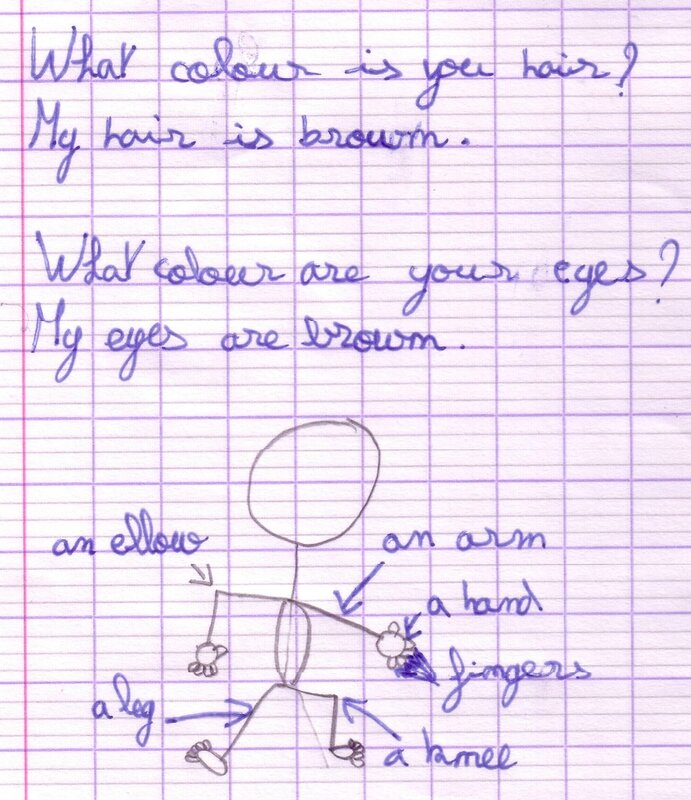 What colour is you hair?
My hair is brown.
What colour are your eyes?
My eyes are brown.
an ellow
an arm
a hand
fingers
a leg
a knee